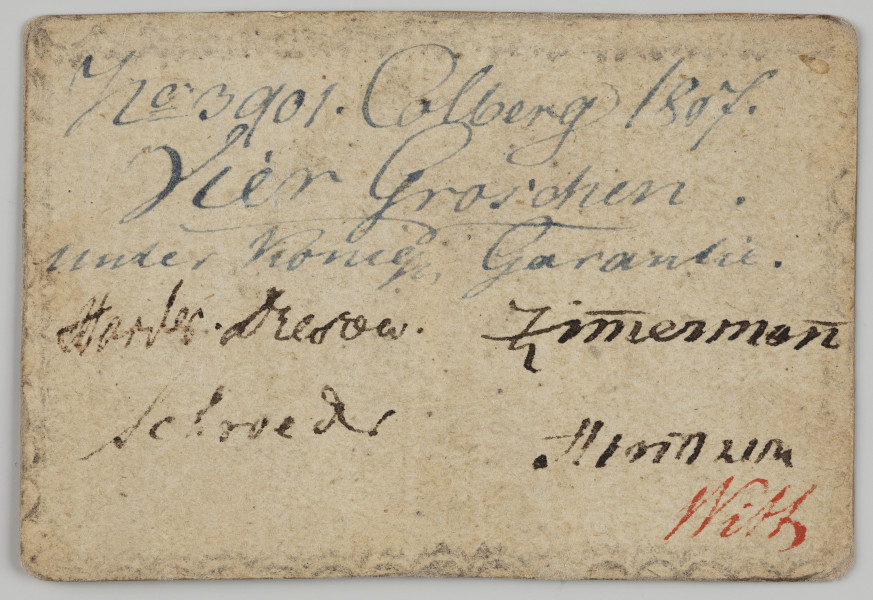 No 3901. Colberg 1807.
Vier Groschen.
unter Königl. Garantie.
Harder. Dresow. Zim̄ermañ
Schroeder
Witth